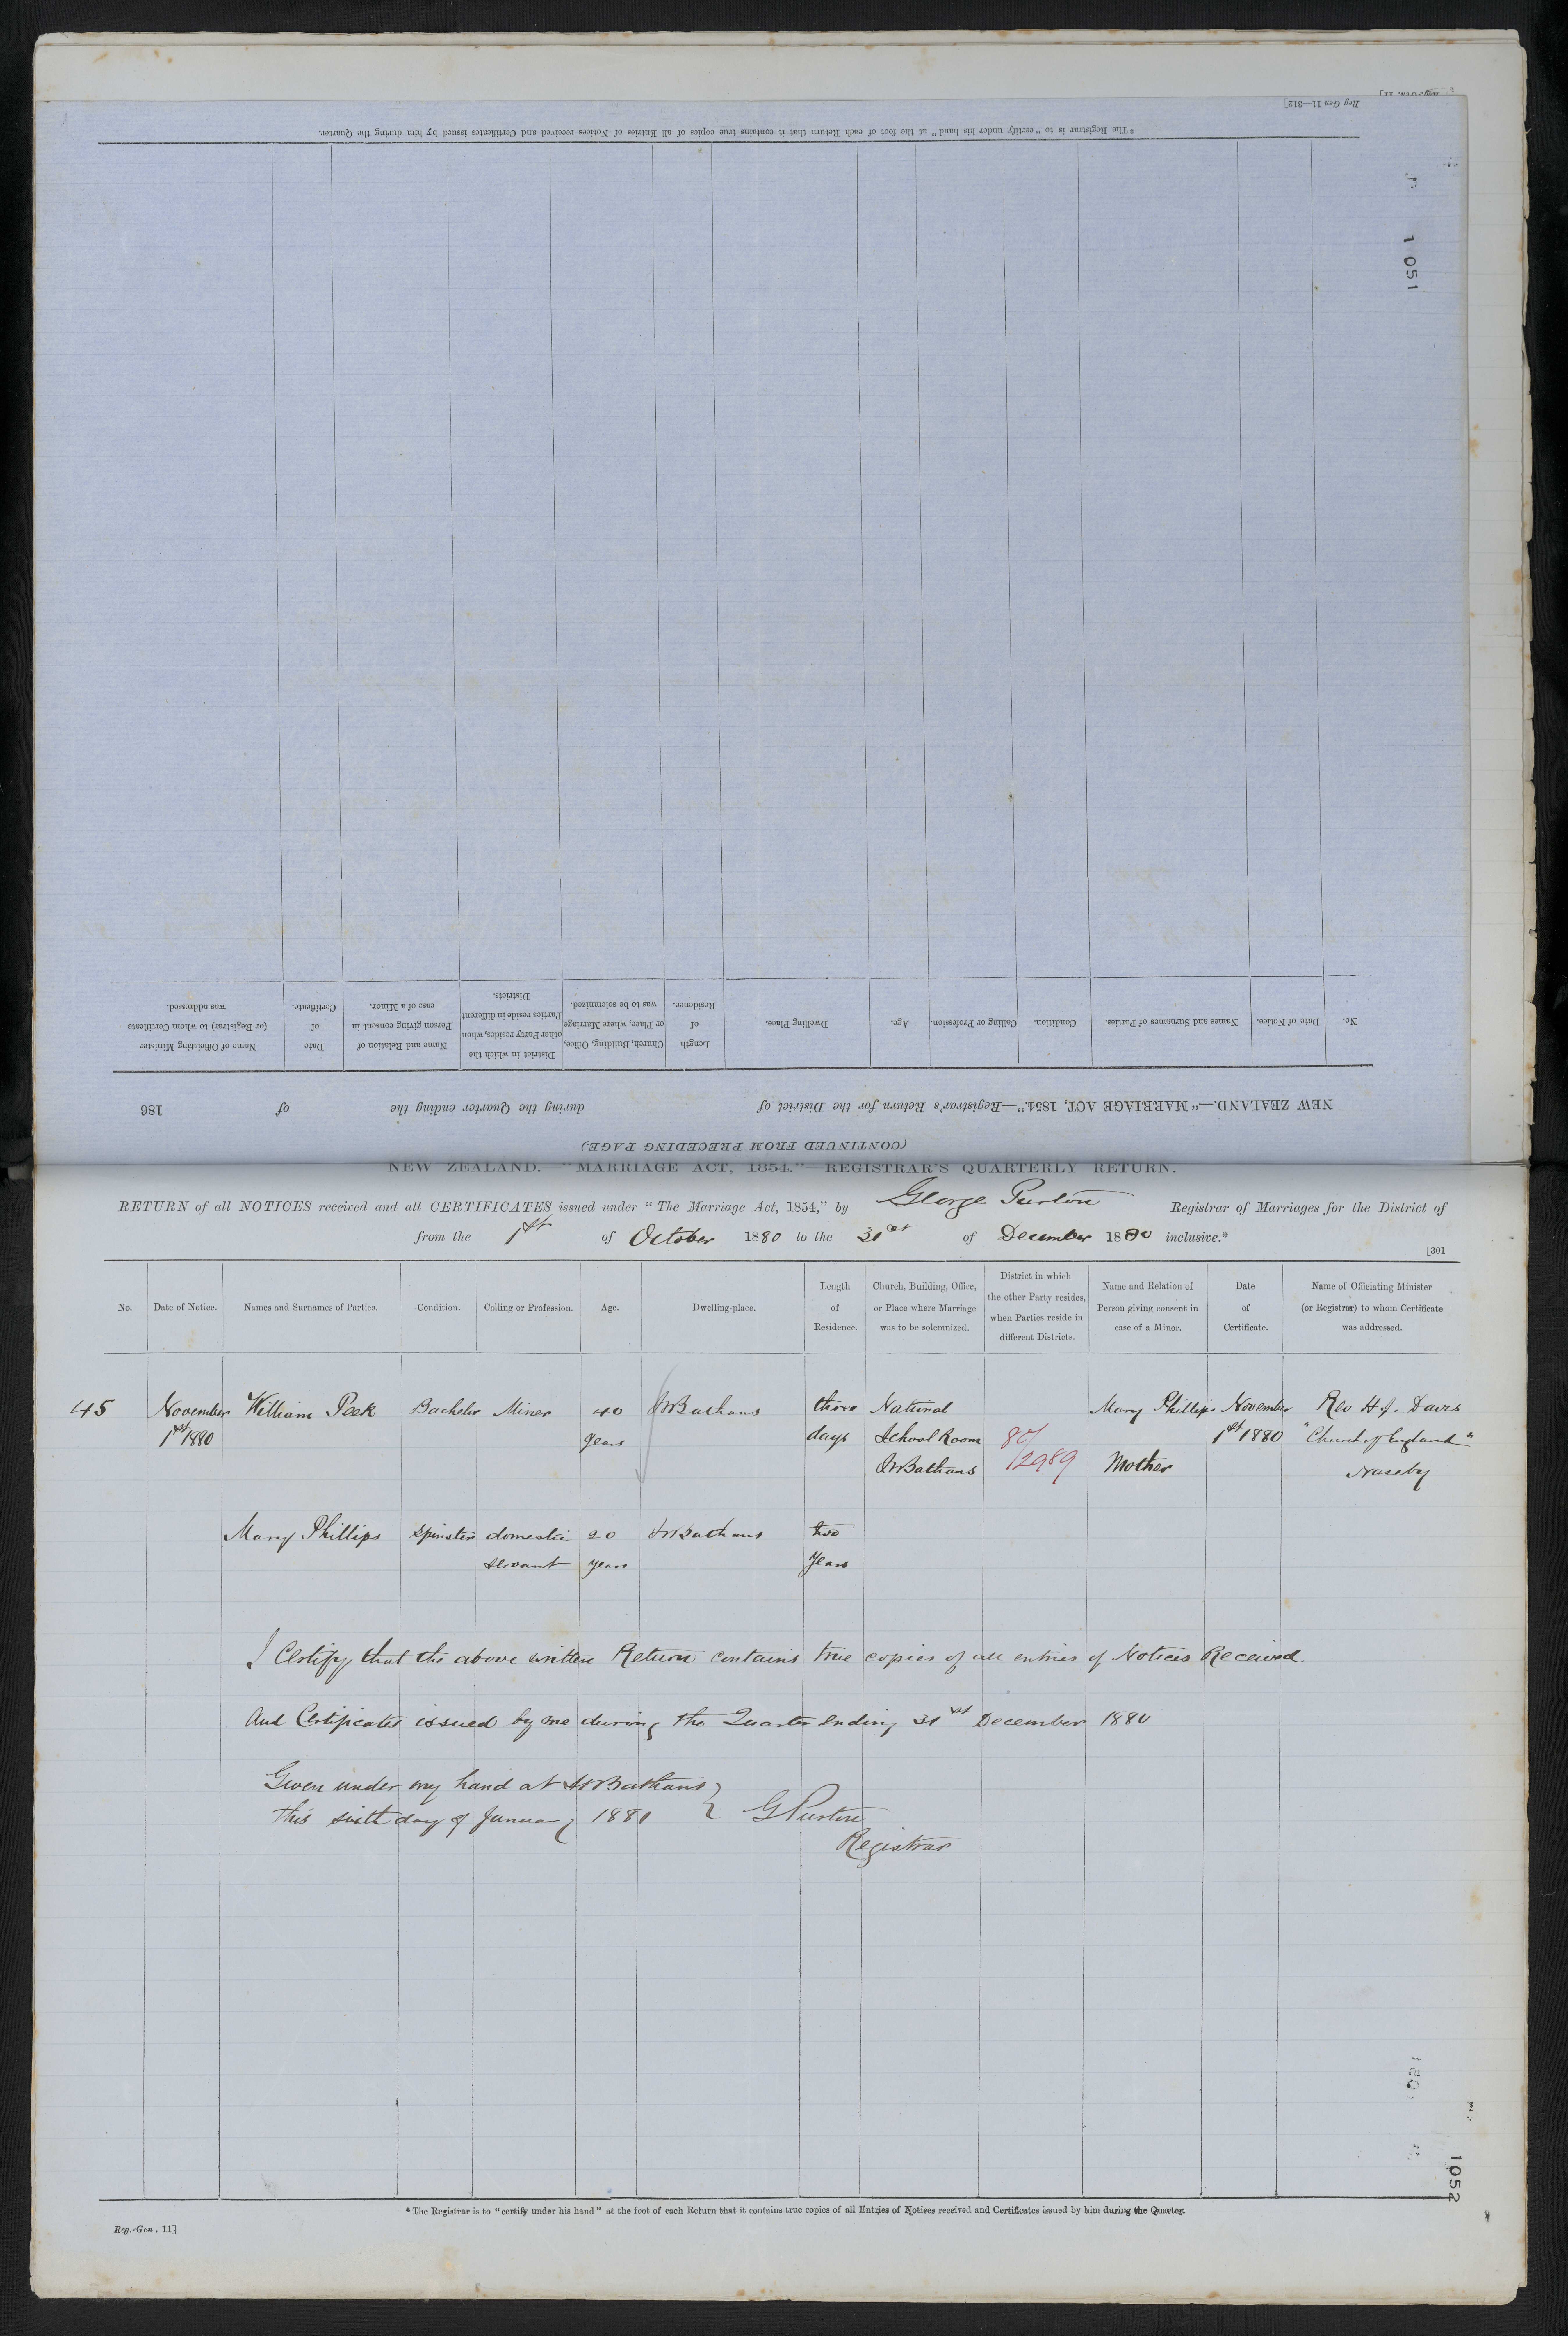 Reg Gen 11—312]
*The Registrar is to "certify under his hand" at the foot of each Return that it contains true copies of all Entries of Notices received and Certificates issued by him during the Quarter.
1051
(CONTINUED FROM PRECEDING PAGE.)
NEW ZEALAND.—"MARRIAGE ACT, 1854."—Registrar's Return for the District of during the Quarter ending the of 186
No.
Date of Notice.
Names and Surnames of Parties.
Condition.
Calling or Profession.
Age.
Dwelling Place.
Length
of
Residence.
Church, Building, Office,
or Place, where Marriage
was to be solemnized.
District in which the
other Party resides, when
Parties reside in different
Districts.
Name and Relation of
Person giving consent in
case of a Minor.
Date
of
Certificate.
Name of Officiating Minister
(or Registrar) to whom Certificate
was addressed.
NEW ZEALAND.—"MARRIAGE ACT, 1854."—REGISTRAR'S QUARTERLY RETURN.
RETURN of all NOTICES received and all CERTIFICATES issued under "The Marriage Act, 1854," by George Purton Registrar of Marriages for the District of
from the 1st of October 1880 to the 31st of December 1880 inclusive.*
[301
No.
Date of Notice.
Names and Surnames of Parties.
Condition.
Calling or Profession.
Age.
Dwelling-place.
Length
of
Residence.
Church, Building, Office,
or Place where Marriage
was to be solemnized.
District in which
the other Party resides,
when Parties reside in
different Districts.
Name and Relation of
Person giving consent in
case of a Minor.
Date
of
Certificate.
Name of Officiating Minister
(or Registrar) to whom Certificate
was addressed.
45 November William Peek Bachelor Miner 40 St Bathans three National Mary Phillips November Rev H. J. Davis
1st 1880 years days School Room 80/ 1st 1880 "Church of England"
St Bathans /2989 Mother Naseby
Mary Phillips Spinster domestic 20 St Bathans two
servant years years
I Certify that the above written Return contains true copies of all entries of Notices Received
And Certificates issued by me during the Quarter ending 31st December 1880
Given under my hand at St Bathans }
this sixth day of January 1881 } G Purton
Registrar
1052
*The Registrar is to "certify under his hand" at the foot of each Return that it contains true copies of all Entries of Notices received and Certificates issued by him during the Quarter.
Reg.-Gen. 11]